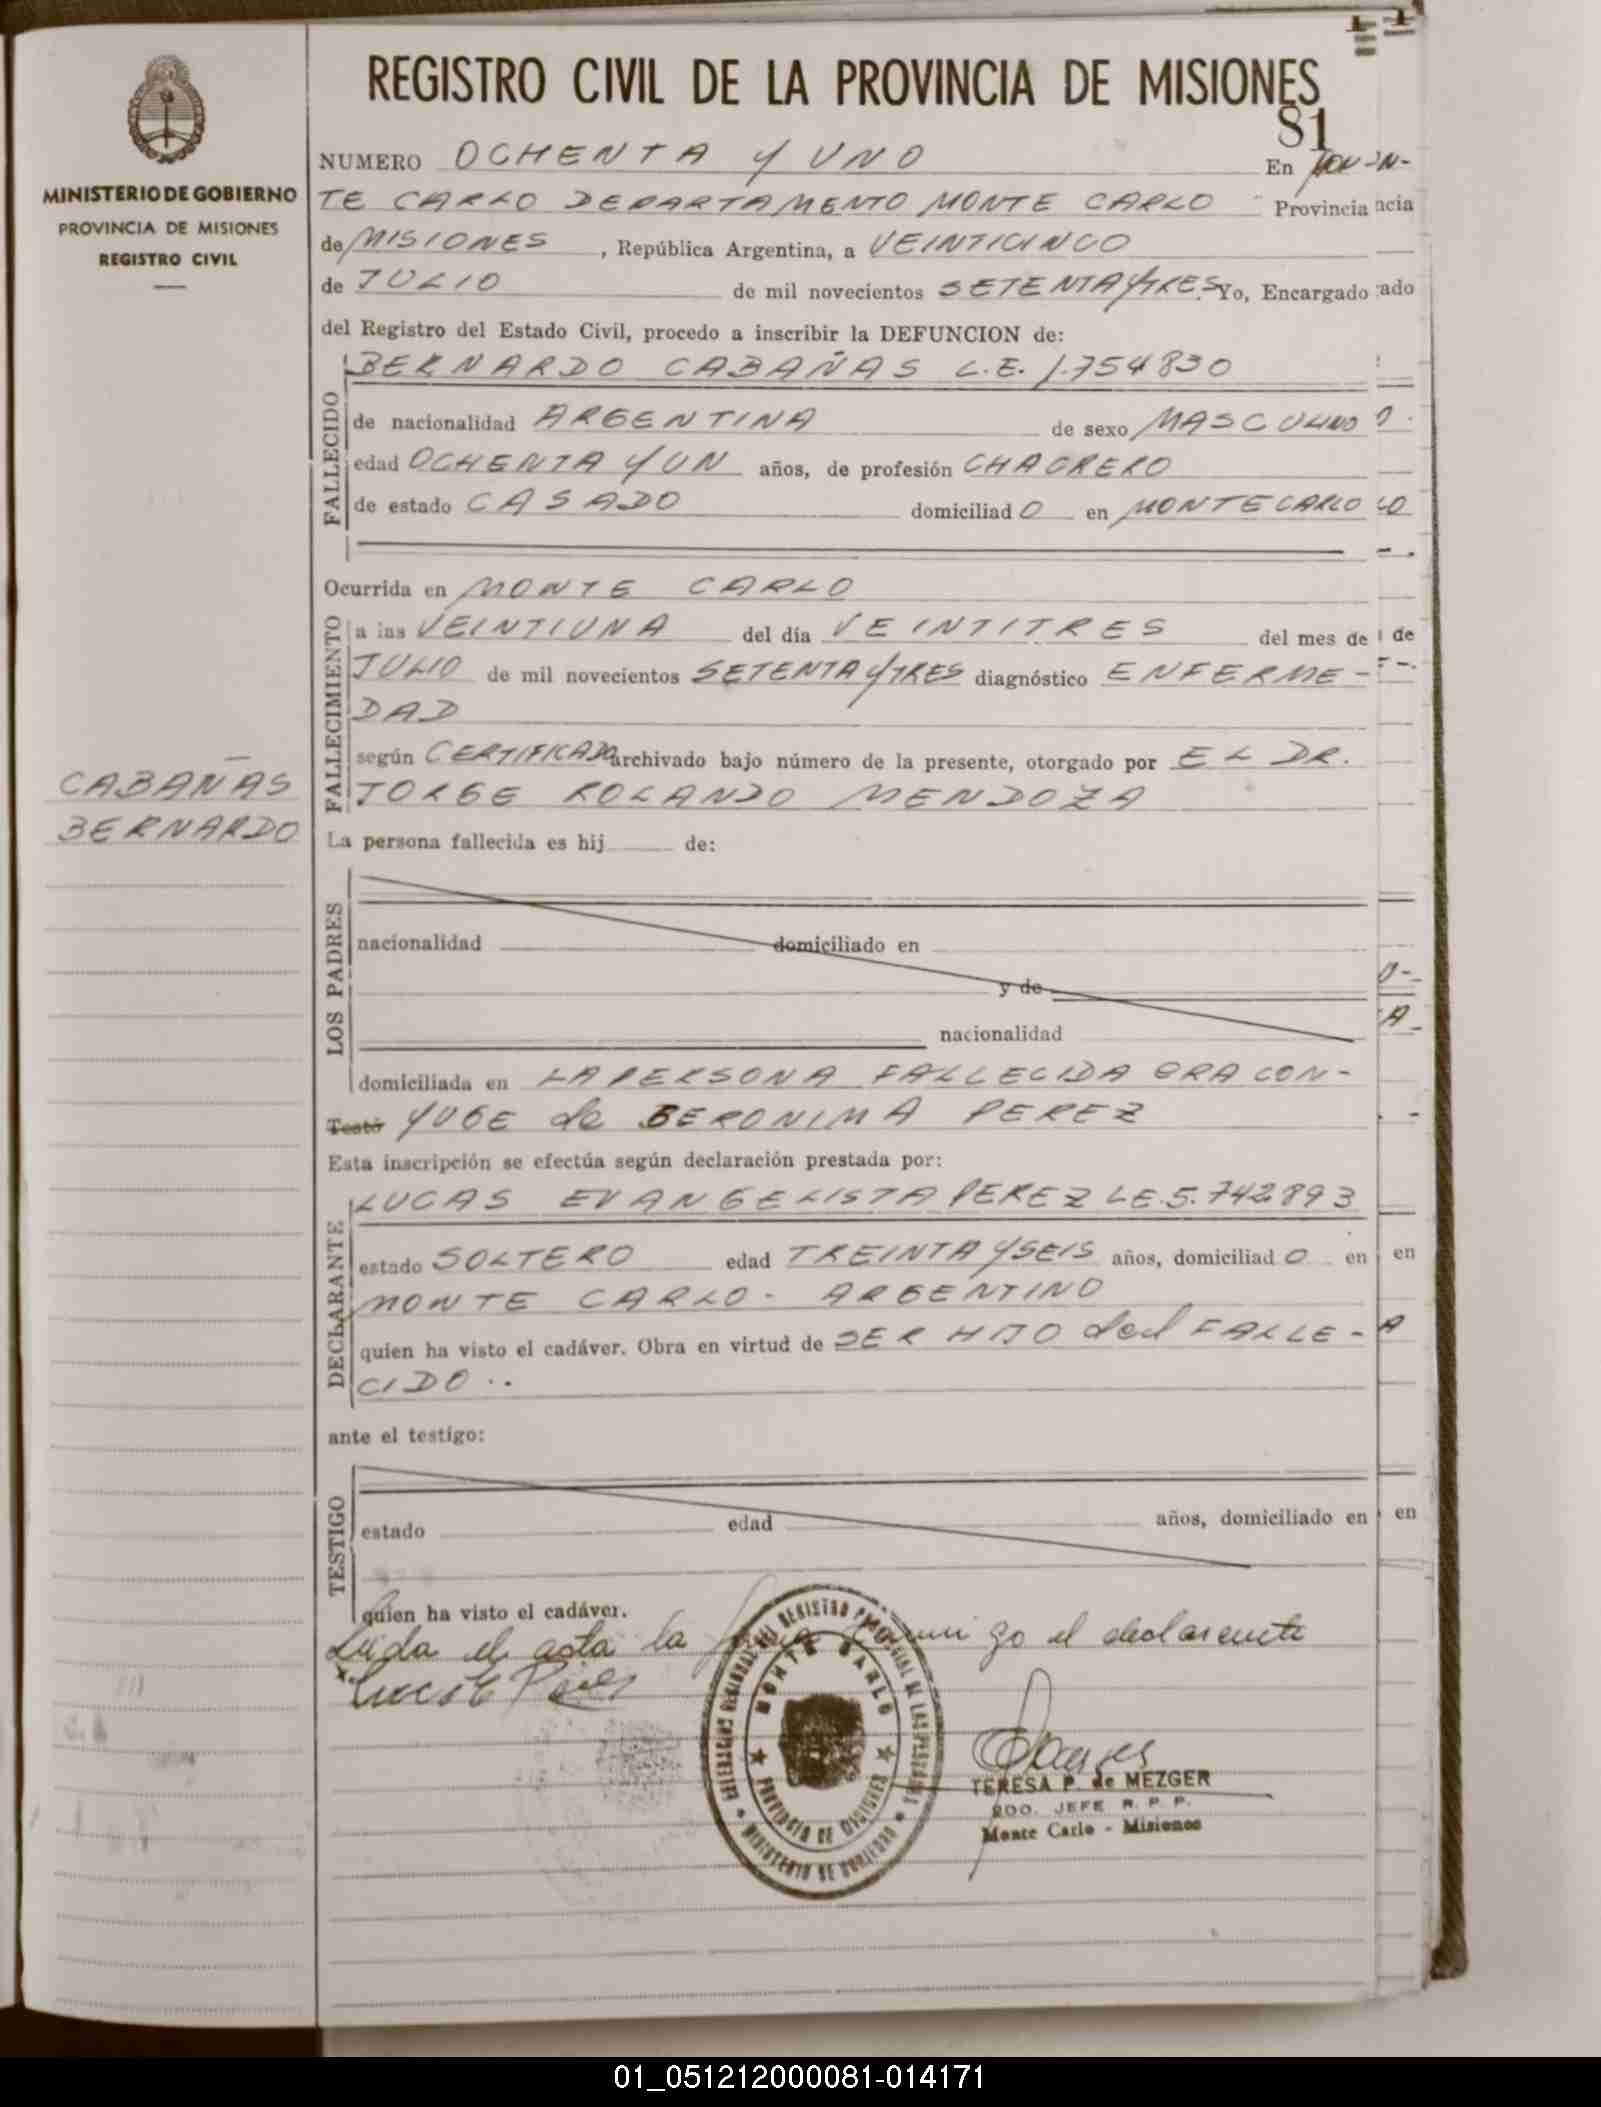 REGISTRO CIVIL DE LA PROVINCIA DE MISIONES
81
MINISTERIO DE GOBIERNO
PROVINCIA DE MISIONES
REGISTRO CIVIL
CABAÑAS
BERNARDO
NUMERO OCHENTA Y UNO En MON-
TE CARLO DEPARTAMENTO MONTE CARLO Provincia
de MISIONES, República Argentina, a VEINTICINCO
de JULIO de mil novecientos SETENTA Y TRES. Yo, Encargado
del Registro del Estado Civil, procedo a inscribir la DEFUNCION de:
BERNARDO CABAÑAS L.E. 1.754830
FALLECIDO
de nacionalidad ARGENTINA de sexo MASCULINO
edad OCHENTA Y UN años, de profesión CHACRERO
de estado CASADO domiciliad O en MONTECARLO
Ocurrida en MONTE CARLO
FALLECIMIENTO
a las VEINTIUNA del día VEINTITRES del mes de
JULIO de mil novecientos SETENTA Y TRES diagnóstico ENFERME-
DAD
según CERTIFICADO archivado bajo número de la presente, otorgado por EL DR.
JORGE ROLANDO MENDOZA
La persona fallecida es hij de:
LOS PADRES
nacionalidad domiciliado en
y de
nacionalidad
domiciliada en LA PERSONA FALLECIDA ERA CON-
Testó YUGE de BERONIMA PEREZ
Esta inscripción se efectúa según declaración prestada por:
DECLARANTE
LUCAS EVANGELISTA PEREZ LE.5.742893
estado SOLTERO edad TREINTA Y SEIS años, domiciliad O en
MONTE CARLO - ARGENTINO
quien ha visto el cadáver. Obra en virtud de SER HIJO del FALLE-
CIDO..
ante el testigo:
TESTIGO
estado edad años, domiciliado en
quien ha visto el cadáver.
Leida el acta la firma conmigo el declarente
Lucas E Pérez
MONTE CARLO
PROVINCIA DE MISIONES
MINISTERIO DE GOBIERNO
TERESA P. de MEZGER
JEFE R. P. P.
Monte Carlo - Misiones
01_051212000081-014171